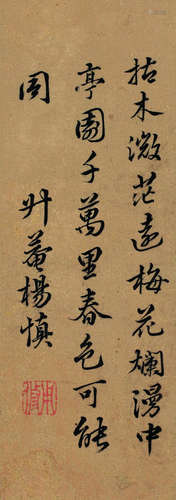 枯木微茫遠梅花爛漫中
亭園千萬里春色可能
同
升菴楊慎
用修